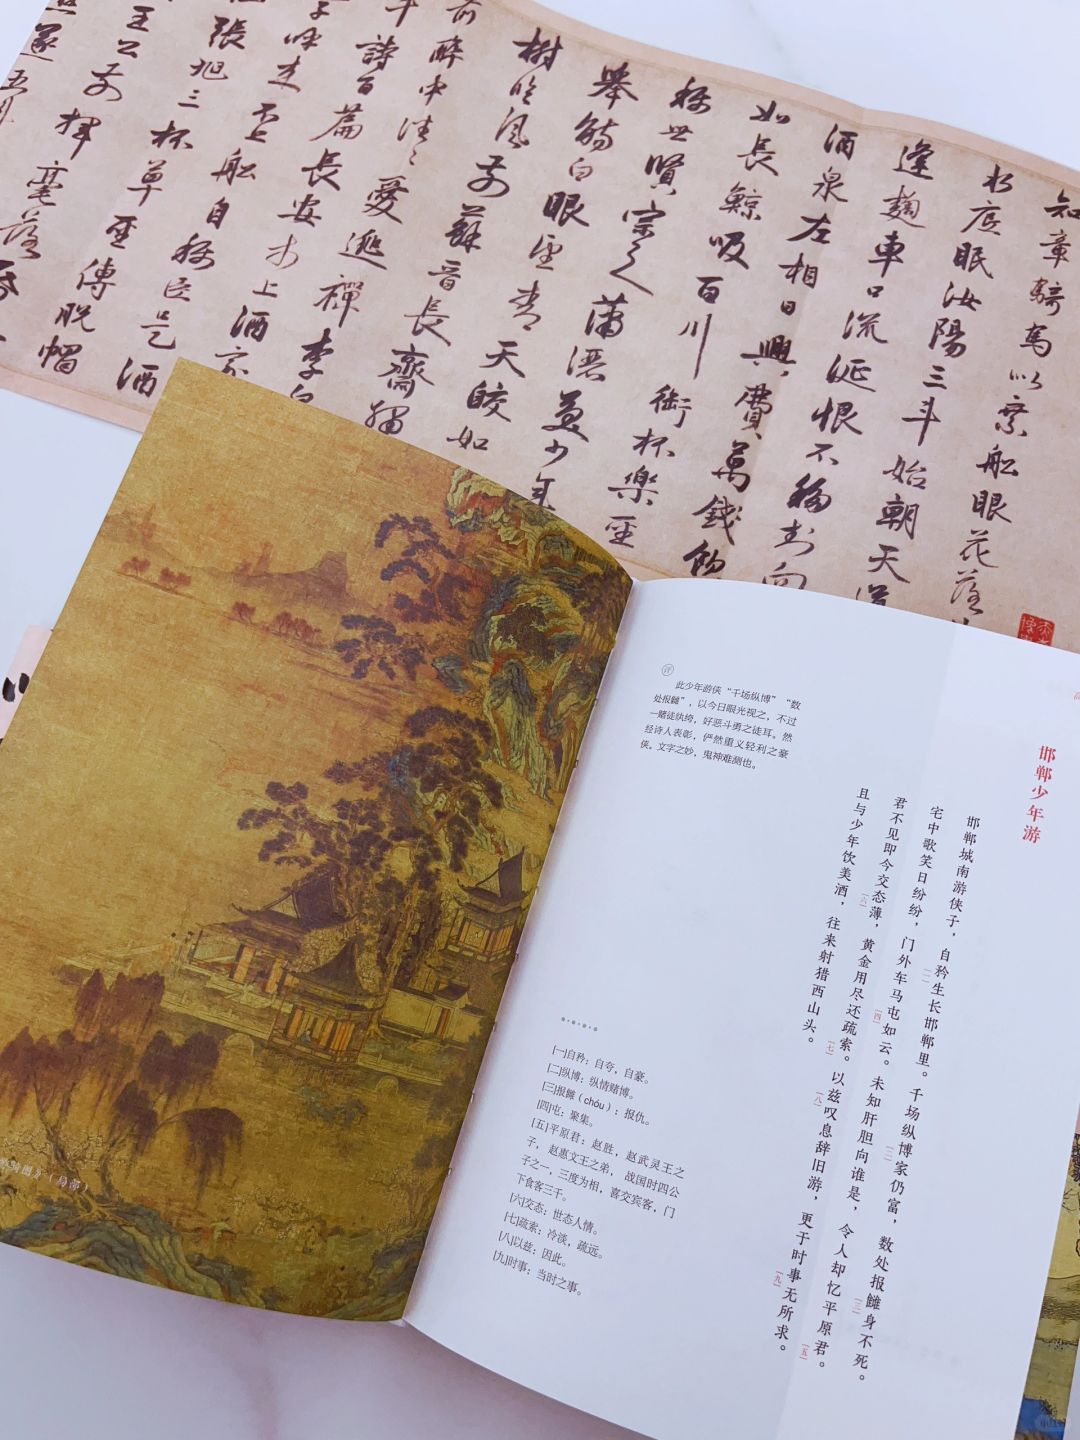 知章騎馬似乘舩眼花落
水底眠汝陽三斗始朝天道
逢麹車口流涎恨不移封向
酒泉左相日興費萬錢飲
如長鯨吸百川銜杯樂聖
稱世賢宗之瀟洒美少年
舉觴白眼望青天皎如
樹臨風前蘇晉長齋繡
前醉中往〻愛逃禪李白
斗詩百篇長安市上酒家
子呼来不上舩自稱臣是酒
張旭三杯草聖傳脫帽
王公前揮毫落
邯郸少年游
邯郸城南游侠子，自矜[一]生长邯郸里。千场纵博[二]家仍富，数处报雠[三]身不死。
宅中歌笑日纷纷，门外车马屯[四]如云。未知肝胆向谁是，令人却忆平原君[五]。
君不见即今交态[六]薄，黄金用尽还疏索[七]。以兹[八]叹息辞旧游，更于时事[九]无所求。
且与少年饮美酒，往来射猎西山头。
评
此少年游侠“千场纵博”“数
处报雠”，以今日眼光视之，不过
一赌徒纨绔，好恶斗勇之徒耳。然
经诗人表彰，俨然重义轻利之豪
侠。文字之妙，鬼神难测也。
[一]自矜：自夸，自豪。
[二]纵博：纵情赌博。
[三]报雠（chóu）：报仇。
[四]屯：聚集。
[五]平原君：赵胜，赵武灵王之
子，赵惠文王之弟，战国时四公
子之一，三度为相，喜交宾客，门
下食客三千。
[六]交态：世态人情。
[七]疏索：冷淡，疏远。
[八]以兹：因此。
[九]时事：当时之事。
图》（局部）